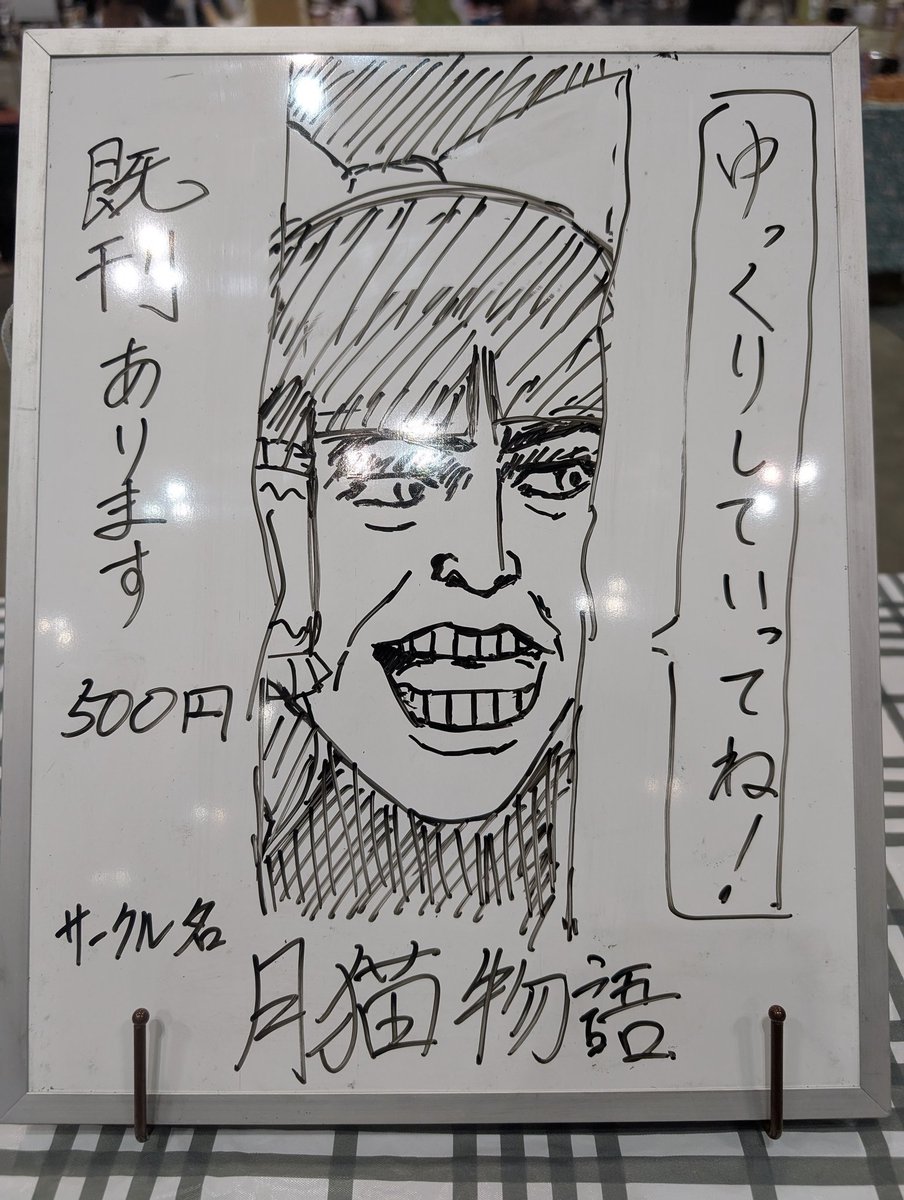 ゆっくりしていってね!
既刊あります
500円
サークル名
月猫物語